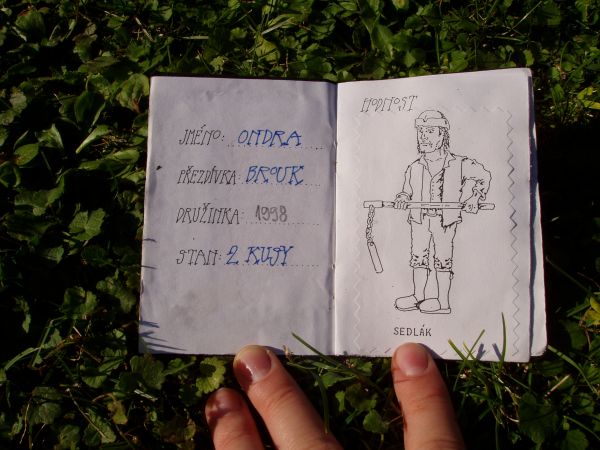 JMÉNO: ONDRA
PŘEZDÍVKA: BROUK
DRUŽINKA: 1998
STAN: 2 KUSY
HODNOST
SEDLÁK